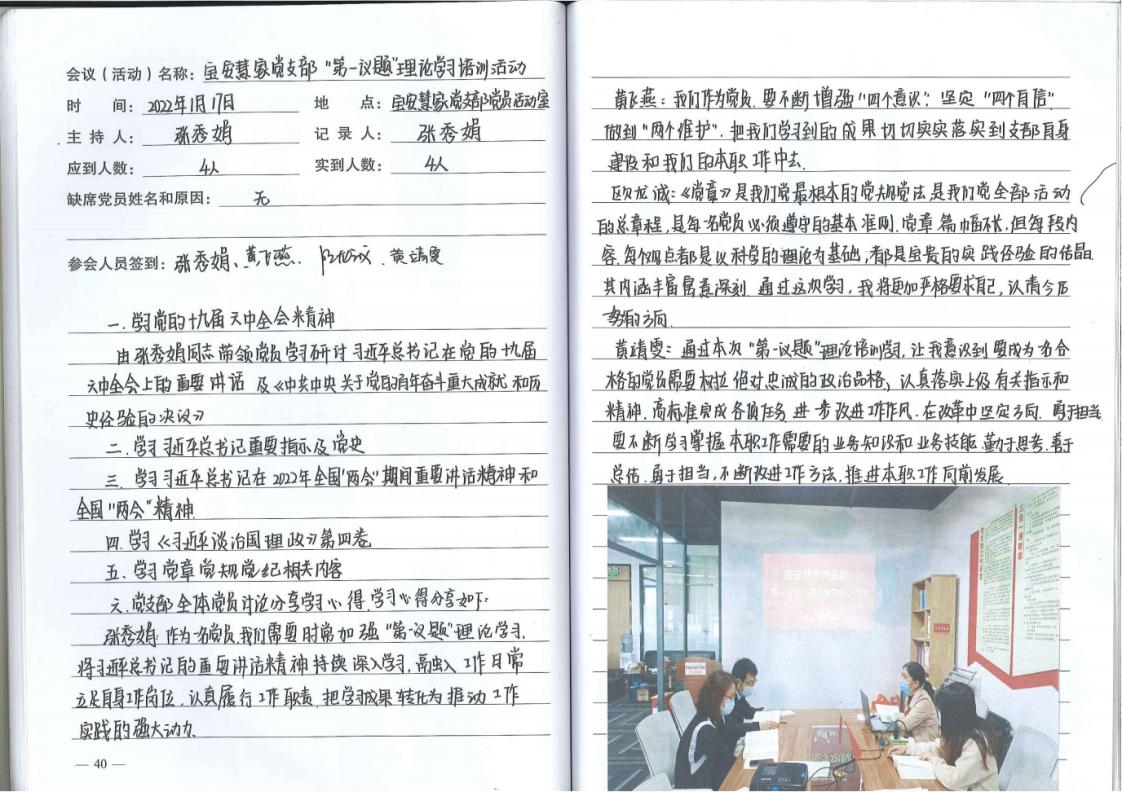 会议（活动）名称：宝安慧家党支部“第一议题”理论学习培训活动
时 间：2022年1月17日 地 点：宝安慧家党支部党员活动室
主 持 人：张秀娟 记 录 人：张秀娟
应到人数：4人 实到人数：4人
缺席党员姓名和原因：无
参会人员签到：张秀娟、黄飞燕、 黄靖雯
一.学习党的十九届六中全会精神
由张秀娟同志带领党员学习研讨习近平总书记在党的十九届
六中全会上的重要讲话及《中共中央关于党的百年奋斗重大成就和历
史经验的决议》
二.学习习近平总书记重要指示及党史
三.学习习近平总书记在2022年全国“两会”期间重要讲话精神和
全国“两会”精神
四.学习《习近平谈治国理政》第四卷
五.学习党章党规党纪相关内容
六.党支部全体党员讨论分享学习心得,学习心得分享如下:
张秀娟:作为一名党员,我们需要时常加强“第一议题”理论学习.
将习近平总书记的重要讲话精神持续深入学习,高融入工作日常
立足自身工作岗位,认真履行工作职责.把学习成果转化为推动工作
实践的强大动力.
— 40 —
黄飞燕:我们作为党员.要不断增强“四个意识”.坚定“四个自信”
做到“两个维护”.把我们学习到的成果切切实实落实到支部自身
建设和我们的本职工作中去.
区龙诚:《党章》是我们党最根本的党规党法是我们党全部活动
的总章程,是每一名党员必须遵守的基本准则.党章篇幅不长,但每段内
容.每个观点都是以科学的理论为基础,都是宝贵的实践经验的结晶.
其内涵丰富寓意深刻.通过这次学习,我将更加严格要求自己,认清今后
努力的方向.
黄靖雯:通过本次“第一议题”理论培训学习,让我意识到要成为一名合
格的党员需要树立绝对忠诚的政治品格,认真落实上级有关指示和
精神,高标准完成各项任务.进一步改进工作作风.在改革中坚定方向.勇于担当
要不断学习掌握本职工作需要的业务知识和业务技能.勤于思考.善于
总结.勇于担当,不断改进工作方法.推进本职工作向前发展.
三会一课制度